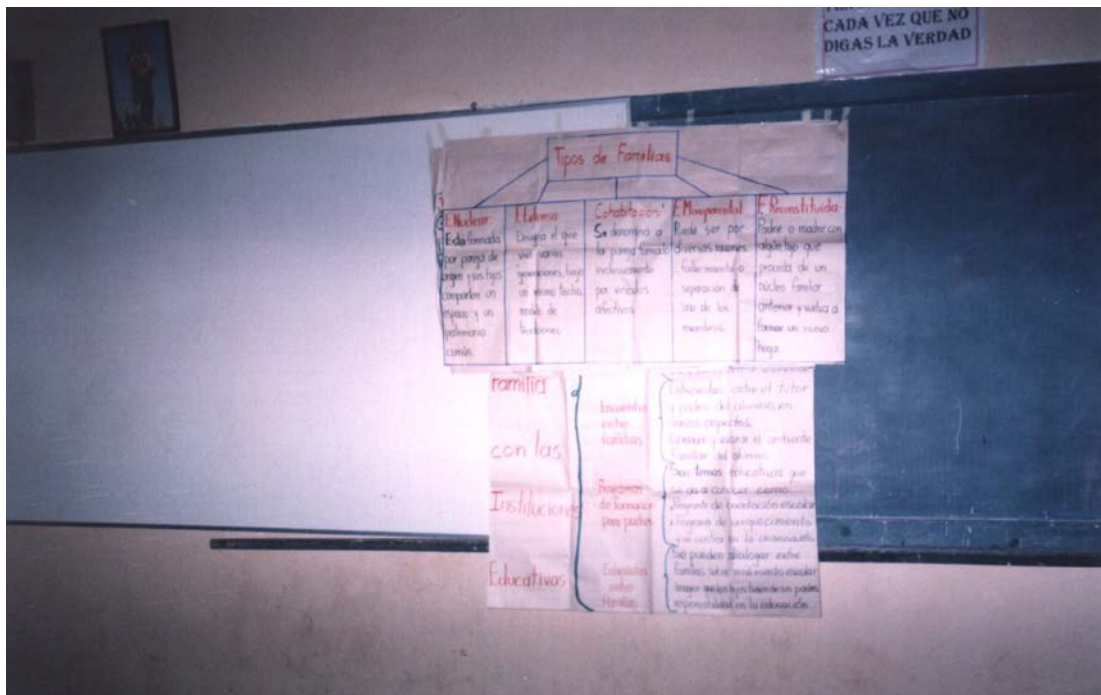 CADA VEZ QUE NO
DIGAS LA VERDAD
Tipos de Familias
F. Nuclear
Esta formada
por pareja de
origen y sus hijos
comparten un
espacio y un
patrimonio
común.
F. Extensa
Designa el que
vive varias
generaciones, bajo
un mismo techo,
modelo de
Cohabitación
Se denomina a
la pareja formada
exclusivamente
por vínculos
afectivos
F. Monoparental
Puede ser por
diversas razones:
fallecimiento o
separación de
uno de los
miembros.
F. Reconstituida
Padre o madre con
algún hijo que
proceda de un
núcleo familiar
anterior y vuelva a
formar un nuevo
hogar.
Familia
con las
Instituciones
Educativas
Encuentros
entre
familias
Programas
de formación
para padres
Entrevistas
entre
familias
Entrevistas entre el tutor
y padres del alumno, en
varios aspectos.
Conocer y valorar el ambiente
familiar del alumno
Son temas educativos que
se da a conocer como:
Programa de orientación escolar
Programa de enriquecimiento
Se pueden dialogar entre
familias sobre rendimiento escolar
responsabilidad en la educación.